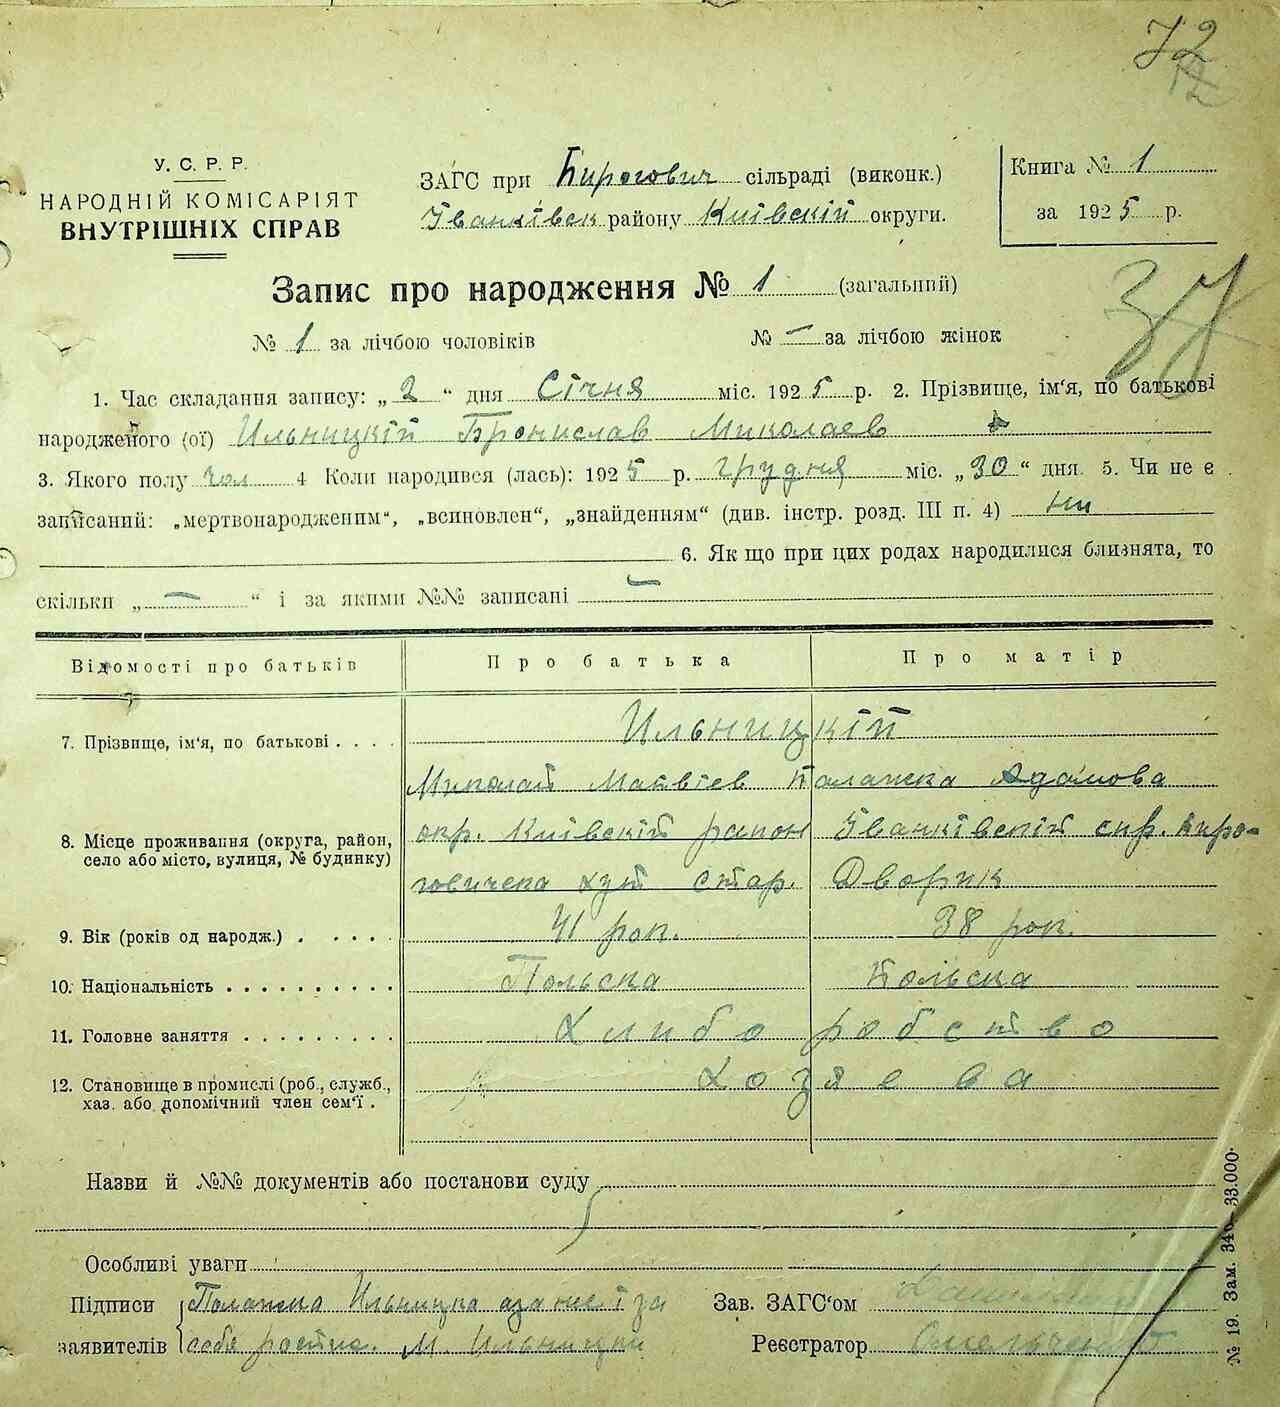 72
У. С. Р. Р.
НАРОДНІЙ КОМІСАРІЯТ
ВНУТРІШНІХ СПРАВ
ЗАГС при Кирогович сільраді (виконк.)
Іванківск району Київскій округи.
Книга № 1
за 1925 р.
Запис про народження № 1 (загальний)
37
№ 1 за лічбою чоловіків № — за лічбою жінок
1. Час складання запису: „2“ дня Січня міс. 1925 р. 2. Прізвище, ім‘я, по батькові
народженого (ої) Ильницкій Бронислав Миколаев
3. Якого полу Чол 4 Коли народився (лась): 1925 р. грудня міс. „30“ дня. 5. Чи не є
записаний: „мертвонародженим“, „всиновлен“, „знайденням“ (див. інстр. розд. III п. 4) ни
6. Як що при цих родах народилися близнята, то
скільки „—“ і за якими №№ записані —
Відомості про батьків Про батька Про матір
7. Прізвище, ім‘я, по батькові . . . . Ильницкій
Миколай Матвієв Палажка Адамова
8. Місце проживання (округа, район, село або місто, вулиця, № будинку) окр. Київскій район Іванківскій сир. Киро-
говичека хут стар. Дворик
9. Вік (років од народж.) . . . . . 41 рок. 38 рок.
10. Національність . . . . . . . . . . Польска Польска
11. Головне заняття . . . . . . . . . Хлиборобство
12. Становище в промислі (роб., служб., хаз. або допомічний член сем‘ї . Хозяева
Назви й №№ документів або постанови суду
Особливі уваги
Підписи Полажка Ильницка аза нее і за
заявителів себе М. Ильницки
Зав. ЗАГС‘ом
Реєстратор Омельченко
№ 19. Зам. 346—33.000.